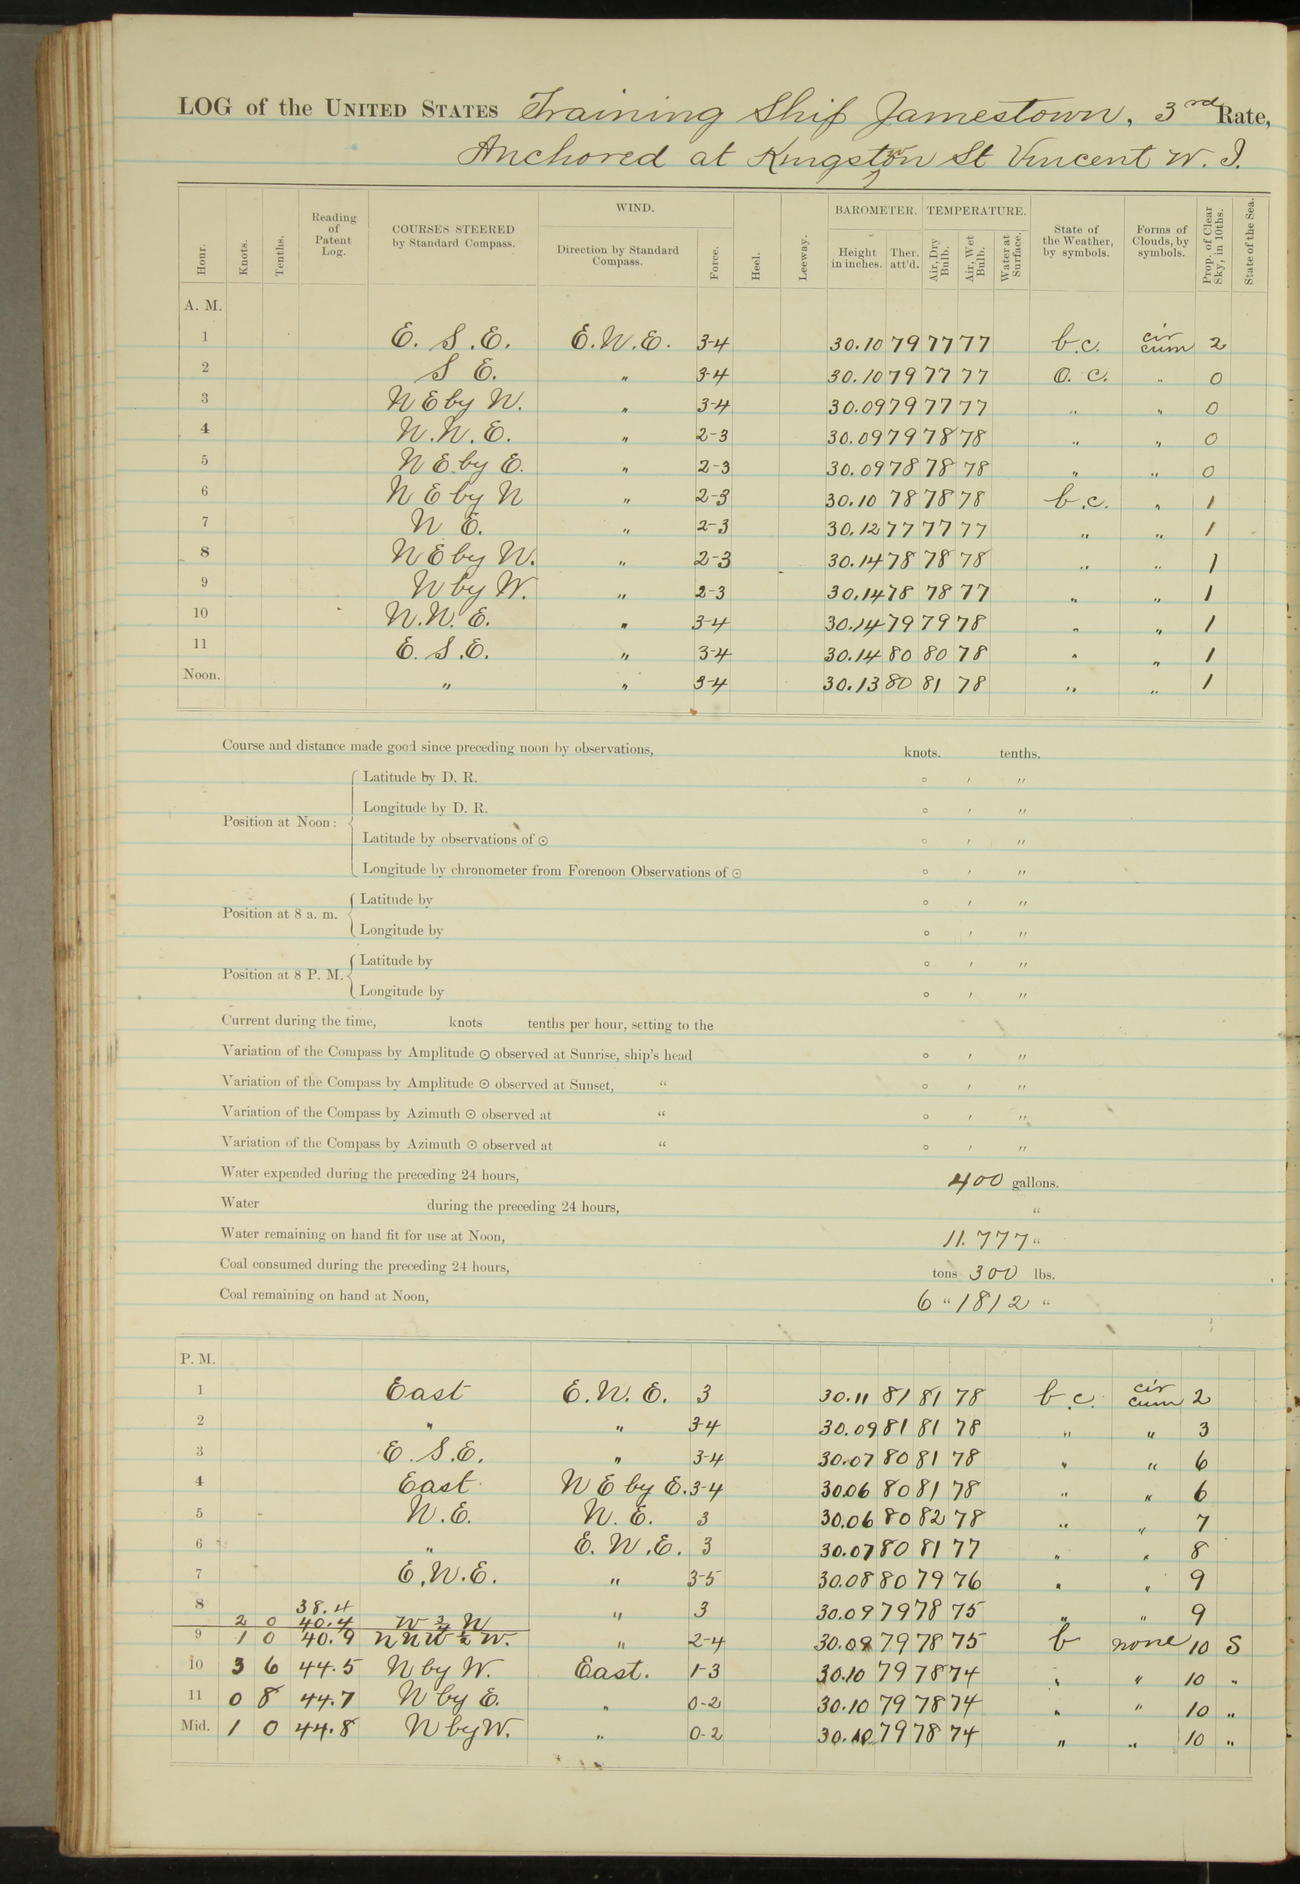 LOG of the UNITED STATES Training Ship Jamestown, 3rd Rate,
Anchored at Kingston St Vincent W. I.
Hour. Knots. Tenths. Reading of Patent Log. COURSES STEERED by Standard Compass. WIND. Direction by Standard Compass. Force. Heel. Leeway. BAROMETER. Height in inches. Ther. att'd. TEMPERATURE. Air, Dry Bulb. Air, Wet Bulb. Water at Surface. State of the Weather, by symbols. Forms of Clouds, by symbols. Prop. of Clear Sky, in 10ths. State of the Sea.
A. M.
1 E. S. E. E.N.E. 3-4 30.10 79 77 77 b.c. cir cum 2
2 S E. " 3-4 30.10 79 77 77 O. C. " 0
3 N E by N. " 3-4 30.09 79 77 77 " " 0
4 N.N.E. " 2-3 30.09 79 78 78 " " 0
5 N E by E. " 2-3 30.09 78 78 78 " " 0
6 N E by N " 2-3 30.10 78 78 78 b.c. " 1
7 N E. " 2-3 30.12 77 77 77 " " 1
8 N E by N. " 2-3 30.14 78 78 78 " " 1
9 N by W. " 2-3 30.14 78 78 77 " " 1
10 N.N.E. " 3-4 30.14 79 79 78 " " 1
11 E. S.E. " 3-4 30.14 80 80 78 " " 1
Noon. " " 3-4 30.13 80 81 78 " " 1
Course and distance made good since preceding noon by observations, knots. tenths.
Position at Noon: Latitude by D. R. ° ′ ″
Longitude by D. R. ° ′ ″
Latitude by observations of ☉ ° ′ ″
Longitude by chronometer from Forenoon Observations of ☉ ° ′ ″
Position at 8 a. m. Latitude by ° ′ ″
Longitude by ° ′ ″
Position at 8 P. M. Latitude by ° ′ ″
Longitude by ° ′ ″
Current during the time, knots tenths per hour, setting to the
Variation of the Compass by Amplitude ☉ observed at Sunrise, ship's head ° ′ ″
Variation of the Compass by Amplitude ☉ observed at Sunset, " ° ′ ″
Variation of the Compass by Azimuth ☉ observed at " ° ′ ″
Variation of the Compass by Azimuth ☉ observed at " ° ′ ″
Water expended during the preceding 24 hours, 400 gallons.
Water during the preceding 24 hours, "
Water remaining on hand fit for use at Noon, 11.777 "
Coal consumed during the preceding 24 hours, tons 300 lbs.
Coal remaining on hand at Noon, 6 " 1812 "
P. M.
1 East E.N.E. 3 30.11 81 81 78 b.c. cir cum 2
2 " " 3-4 30.09 81 81 78 " " 3
3 E. S.E. " 3-4 30.07 80 81 78 " " 6
4 East N E by E. 3-4 30.06 80 81 78 " " 6
5 N.E. N.E. 3 30.06 80 82 78 " " 7
6 " E.N.E. 3 30.07 80 81 77 " " 8
7 E.N.E. " 3-5 30.08 80 79 76 " " 9
38.4
8 2 0 40.4 W 3/4 N " 3 30.09 79 78 75 " " 9
9 1 0 40.9 N N W 1/2 W. " 2-4 30.09 79 78 75 b none 10 S
10 3 6 44.5 N by W. East. 1-3 30.10 79 78 74 " " 10 "
11 0 8 44.7 N by E. " 0-2 30.10 79 78 74 " " 10 "
Mid. 1 0 44.8 N by W. " 0-2 30.10 79 78 74 " " 10 "